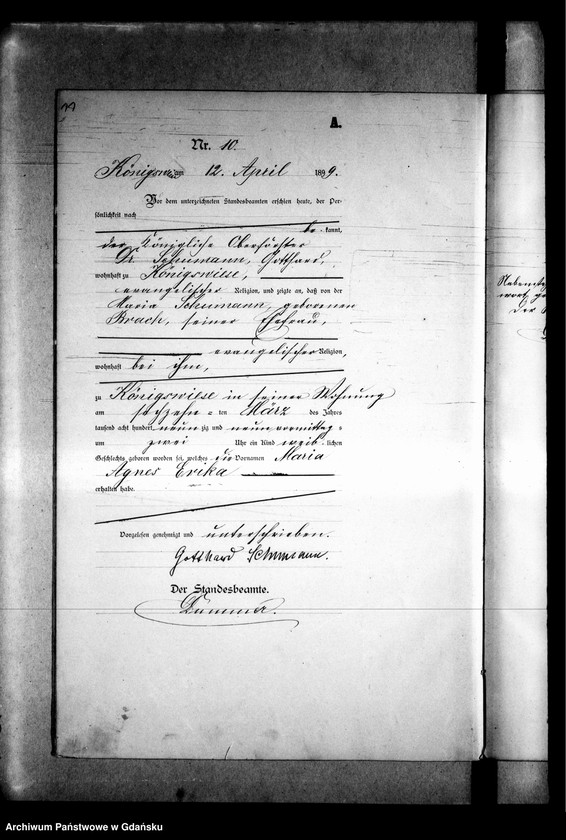 A.
Nr. 10.
Königswiese am 12. April 1899.
Vor dem unterzeichneten Standesbeamten erschien heute, der Per-
sönlichkeit nach
be kannt,
der Königliche Oberförster
Dr. Schumann, Gotthard,
wohnhaft zu Königswiese,
evangelischer Religion, und zeigte an, daß von der
Maria Schumann, geborenen
Brach, seiner Ehefrau,
evangelischer Religion,
wohnhaft bei ihm,
zu Königswiese in seiner Wohnung
am sechzehn ten März des Jahres
tausend acht hundert neun zig und neun vormittag s
um zwei Uhr ein Kind weib lichen
Geschlechts geboren worden sei, welches die Vornamen Maria
Agnes Erika
erhalten habe.
Vorgelesen genehmigt und unterschrieben.
Gotthard Schumann.
Der Standesbeamte.
Archiwum Państwowe w Gdańsku